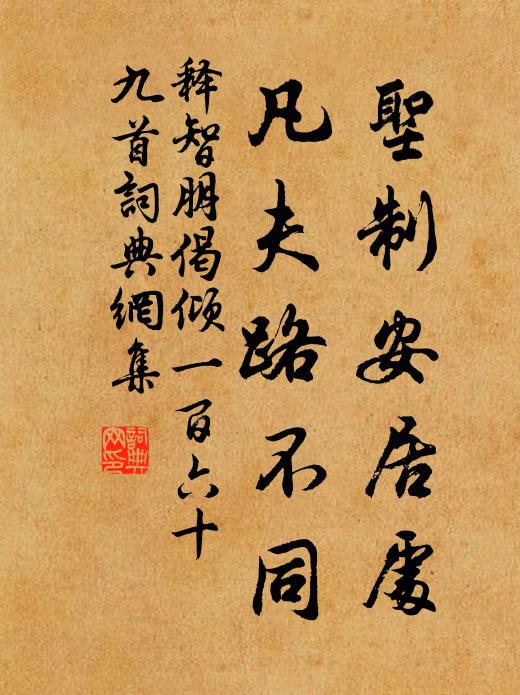 聖制安居處
凡夫路不同
释智朋偈倾一百六十
九首詞典網集
詞典
网印